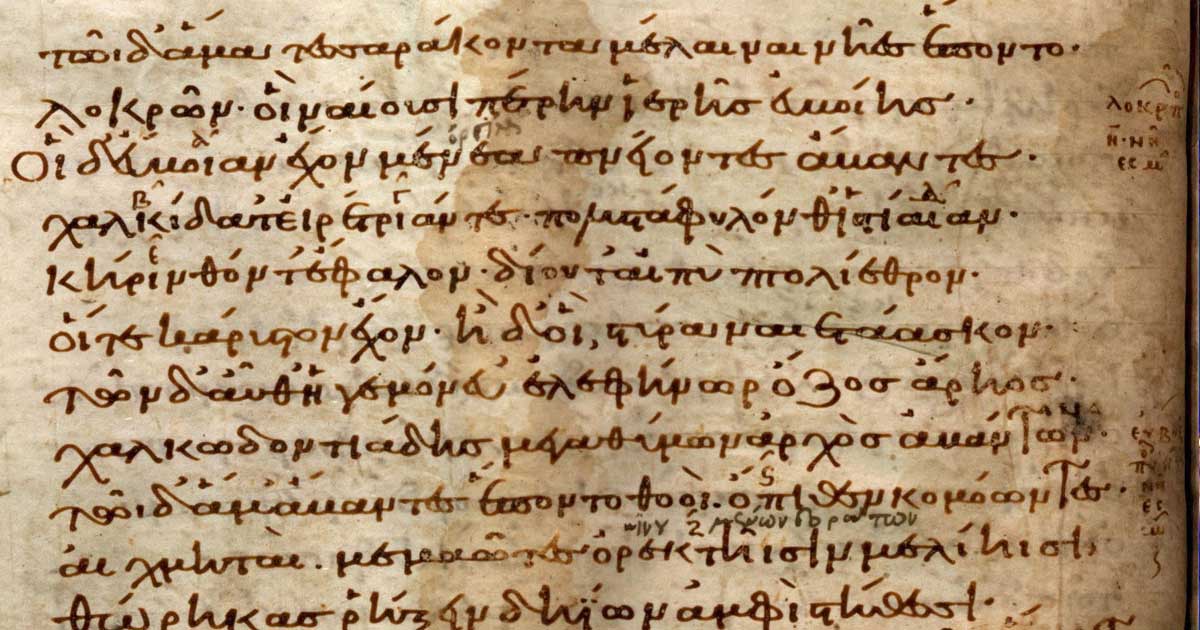 τῶι δ' ἅμα τεσσαράκοντα μέλαιναι νῆες ἕποντο·
λοκρῶν· οἳ ναίουσι πέρην ἱερῆς εὐβοίης·
Οἳ δ' εὔβοιαν ἔχον μένεα πνείοντες ἄβαντες·
χαλκίδα τ' εἰρέτριάν τε· πολυστάφυλόν θ' ἱστίαιαν·
κήρινθόν τ' ἔφαλον· δίου τ' αἰπὺ πτολίεθρον·
οἵ τε κάρυστον ἔχον· ἠδ' οἳ στύρα ναιετάασκον·
τῶν δ' αὖθ' ἡγεμόνευ' ἐλεφήνωρ ὄζος ἄρηος·
χαλκωδοντιάδης μεγαθύμων ἀρχὸς ἀβάντων·
τῶι δ' ἅμ' ἄβαντες ἕποντο θοοί· ὄπιθεν κομόωντες·
αἰχμηταί· μεμαῶτες ὀρεκτῆισιν μελίηισι
θώρηκας ῥήξειν δηΐων ἀμφὶ στήθεσι·